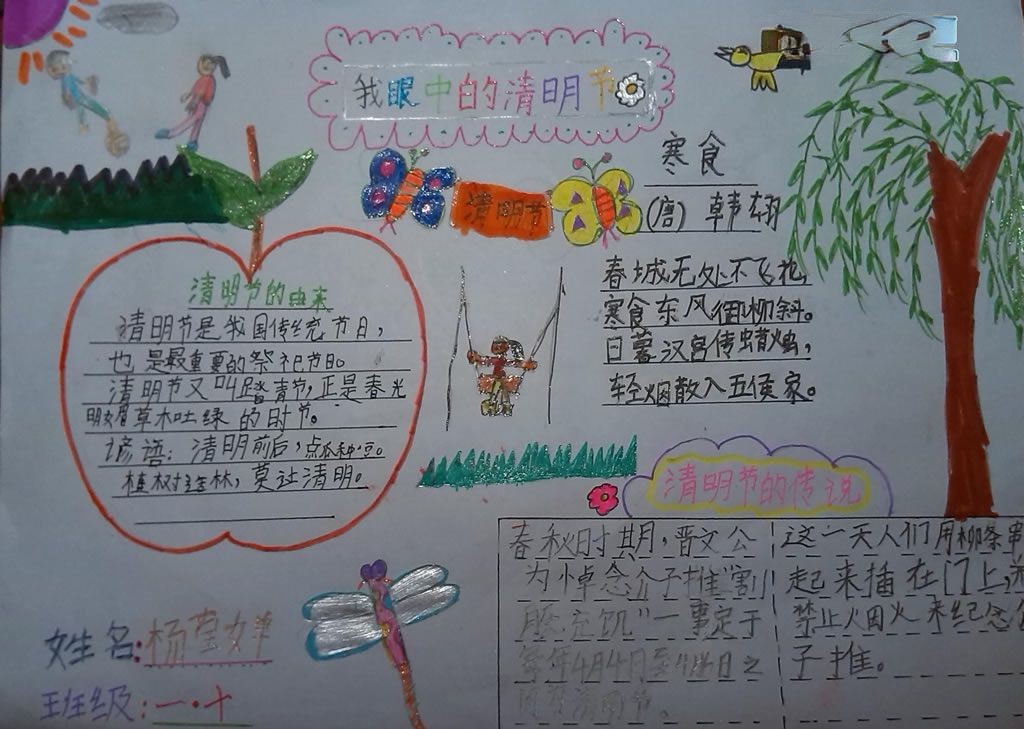 我眼中的清明节
清明节
寒食
(唐) 韩翃
春城无处不飞花,
寒食东风御柳斜。
日暮汉宫传蜡烛,
轻烟散入五侯家。
清明节的由来
清明节是我国传统节日,
也是最重要的祭祀节日。
清明节又叫踏青节,正是春光
明媚草木吐绿的时节。
谚语:清明前后,点瓜种豆。
植树造林,莫让清明。
清明节的传说
春秋时期,晋文公
为悼念介子推"割
股充饥"一事定于
每年4月4日至4月6日之
清明节。
这一天人们用柳条串
起来插在门上,
禁止火因火来纪念
子推。
姓名:杨莹
班级:一·十